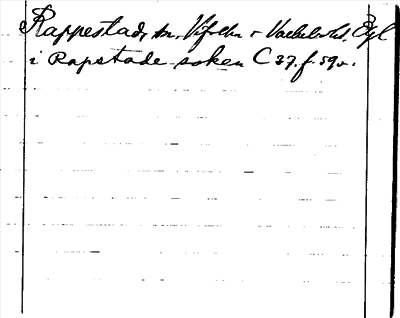 Rappestad, sn, Vifolka - Valkebo hd. Ögl
i Rapstade soken C 37. f. 59v.